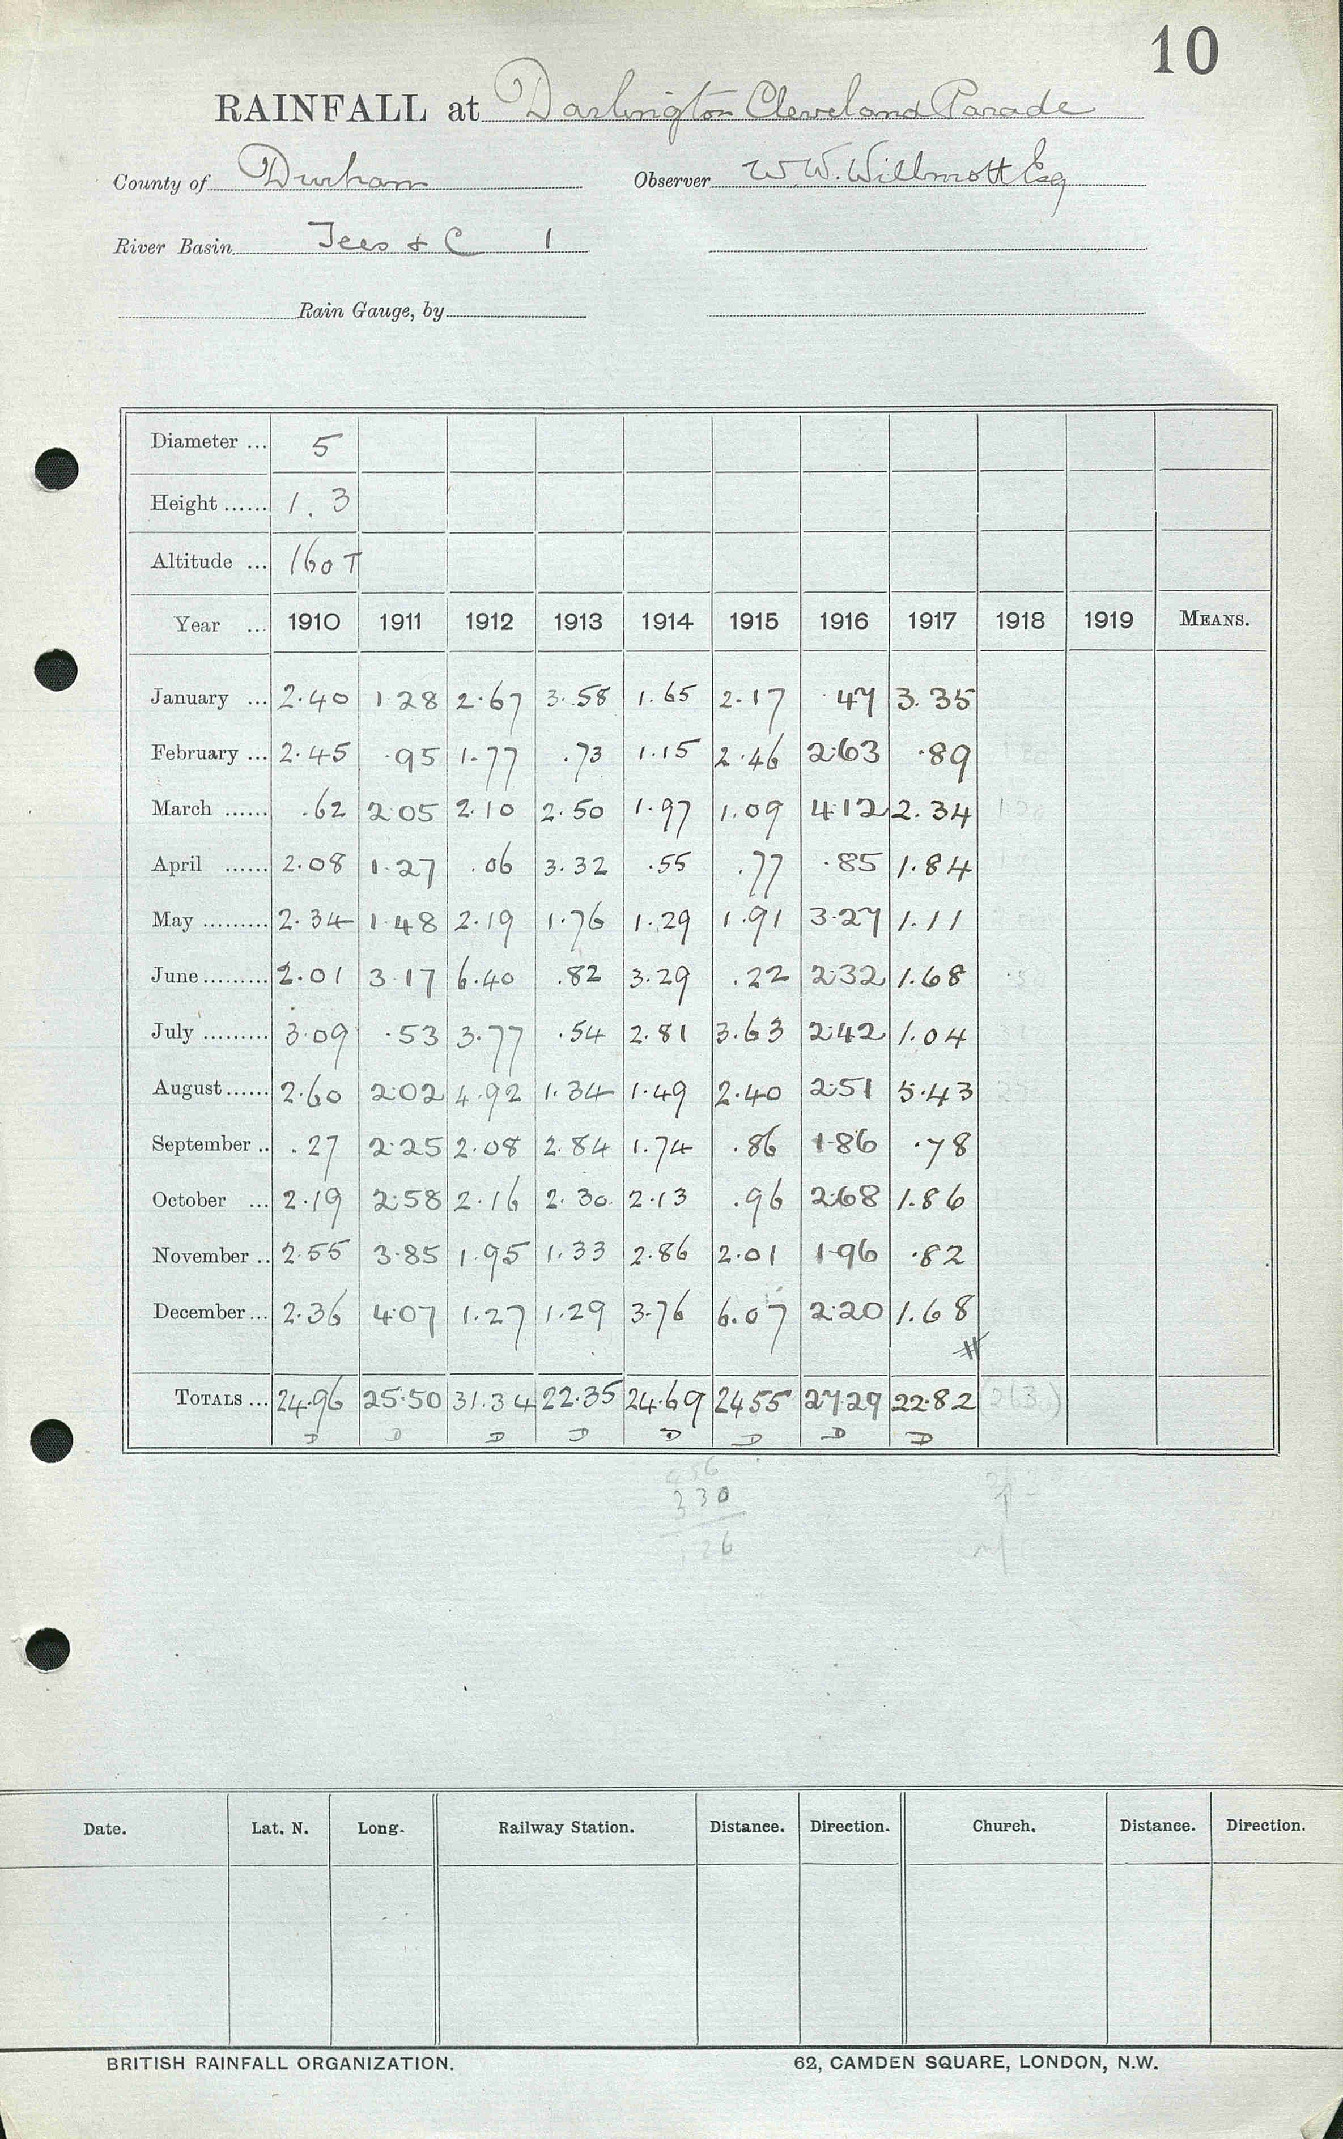 10
RAINFALL at Darlington Cleveland Parade
County of Durham Observer W. W. Willmott Esq
River Basin Tees & C 1
Rain Gauge, by
Diameter ... 5
Height ...... 1. 3
Altitude ... 160 T
Year ... 1910 1911 1912 1913 1914 1915 1916 1917 1918 1919 MEANS.
January ... 2.40 1.28 2.67 3.58 1.65 2.17 .47 3.35
February ... 2.45 .95 1.77 .73 1.15 2.46 2.63 .89
March ...... .62 2.05 2.10 2.50 1.97 1.09 4.12 2.34
April ...... 2.08 1.27 .06 3.32 .55 .77 .85 1.84
May ......... 2.34 1.48 2.19 1.76 1.29 1.91 3.27 1.11
June ......... 2.01 3.17 6.40 .82 3.29 .22 2.32 1.68
July ......... 3.09 .53 3.77 .54 2.81 3.63 2.42 1.04
August ...... 2.60 2.02 4.92 1.34 1.49 2.40 2.51 5.43
September .. .27 2.25 2.08 2.84 1.74 .86 1.86 .78
October ... 2.19 2.58 2.16 2.30 2.13 .96 2.68 1.86
November .. 2.55 3.85 1.95 1.33 2.86 2.01 1.96 .82
December ... 2.36 4.07 1.27 1.29 3.76 6.07 2.20 1.68
#
TOTALS ... 24.96 25.50 31.34 22.35 24.69 24.55 27.29 22.82
D D D D D D D D
330
26
Date. Lat. N. Long. Railway Station. Distance. Direction. Church. Distance. Direction.
BRITISH RAINFALL ORGANIZATION. 62, CAMDEN SQUARE, LONDON, N.W.